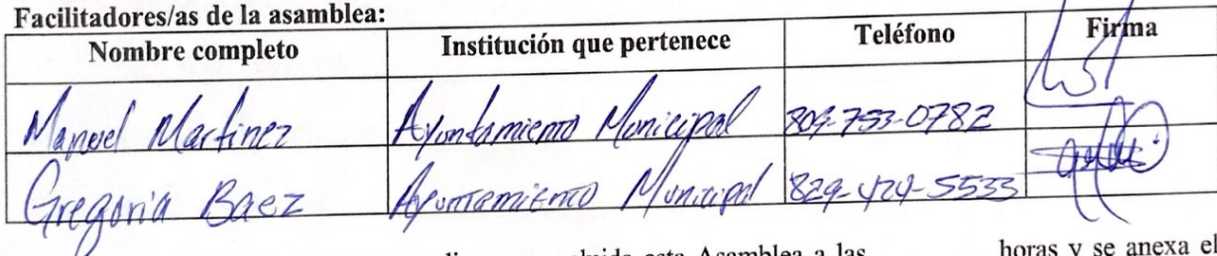 Facilitadores/as de la asamblea:
Nombre completo Institución que pertenece Teléfono Firma
Manuel Martinez Ayuntamiento Municipal 809-753-0782
Gregoria Baez Ayuntamiento Municipal 829-424-5533
esta Asamblea a las horas y se anexa el